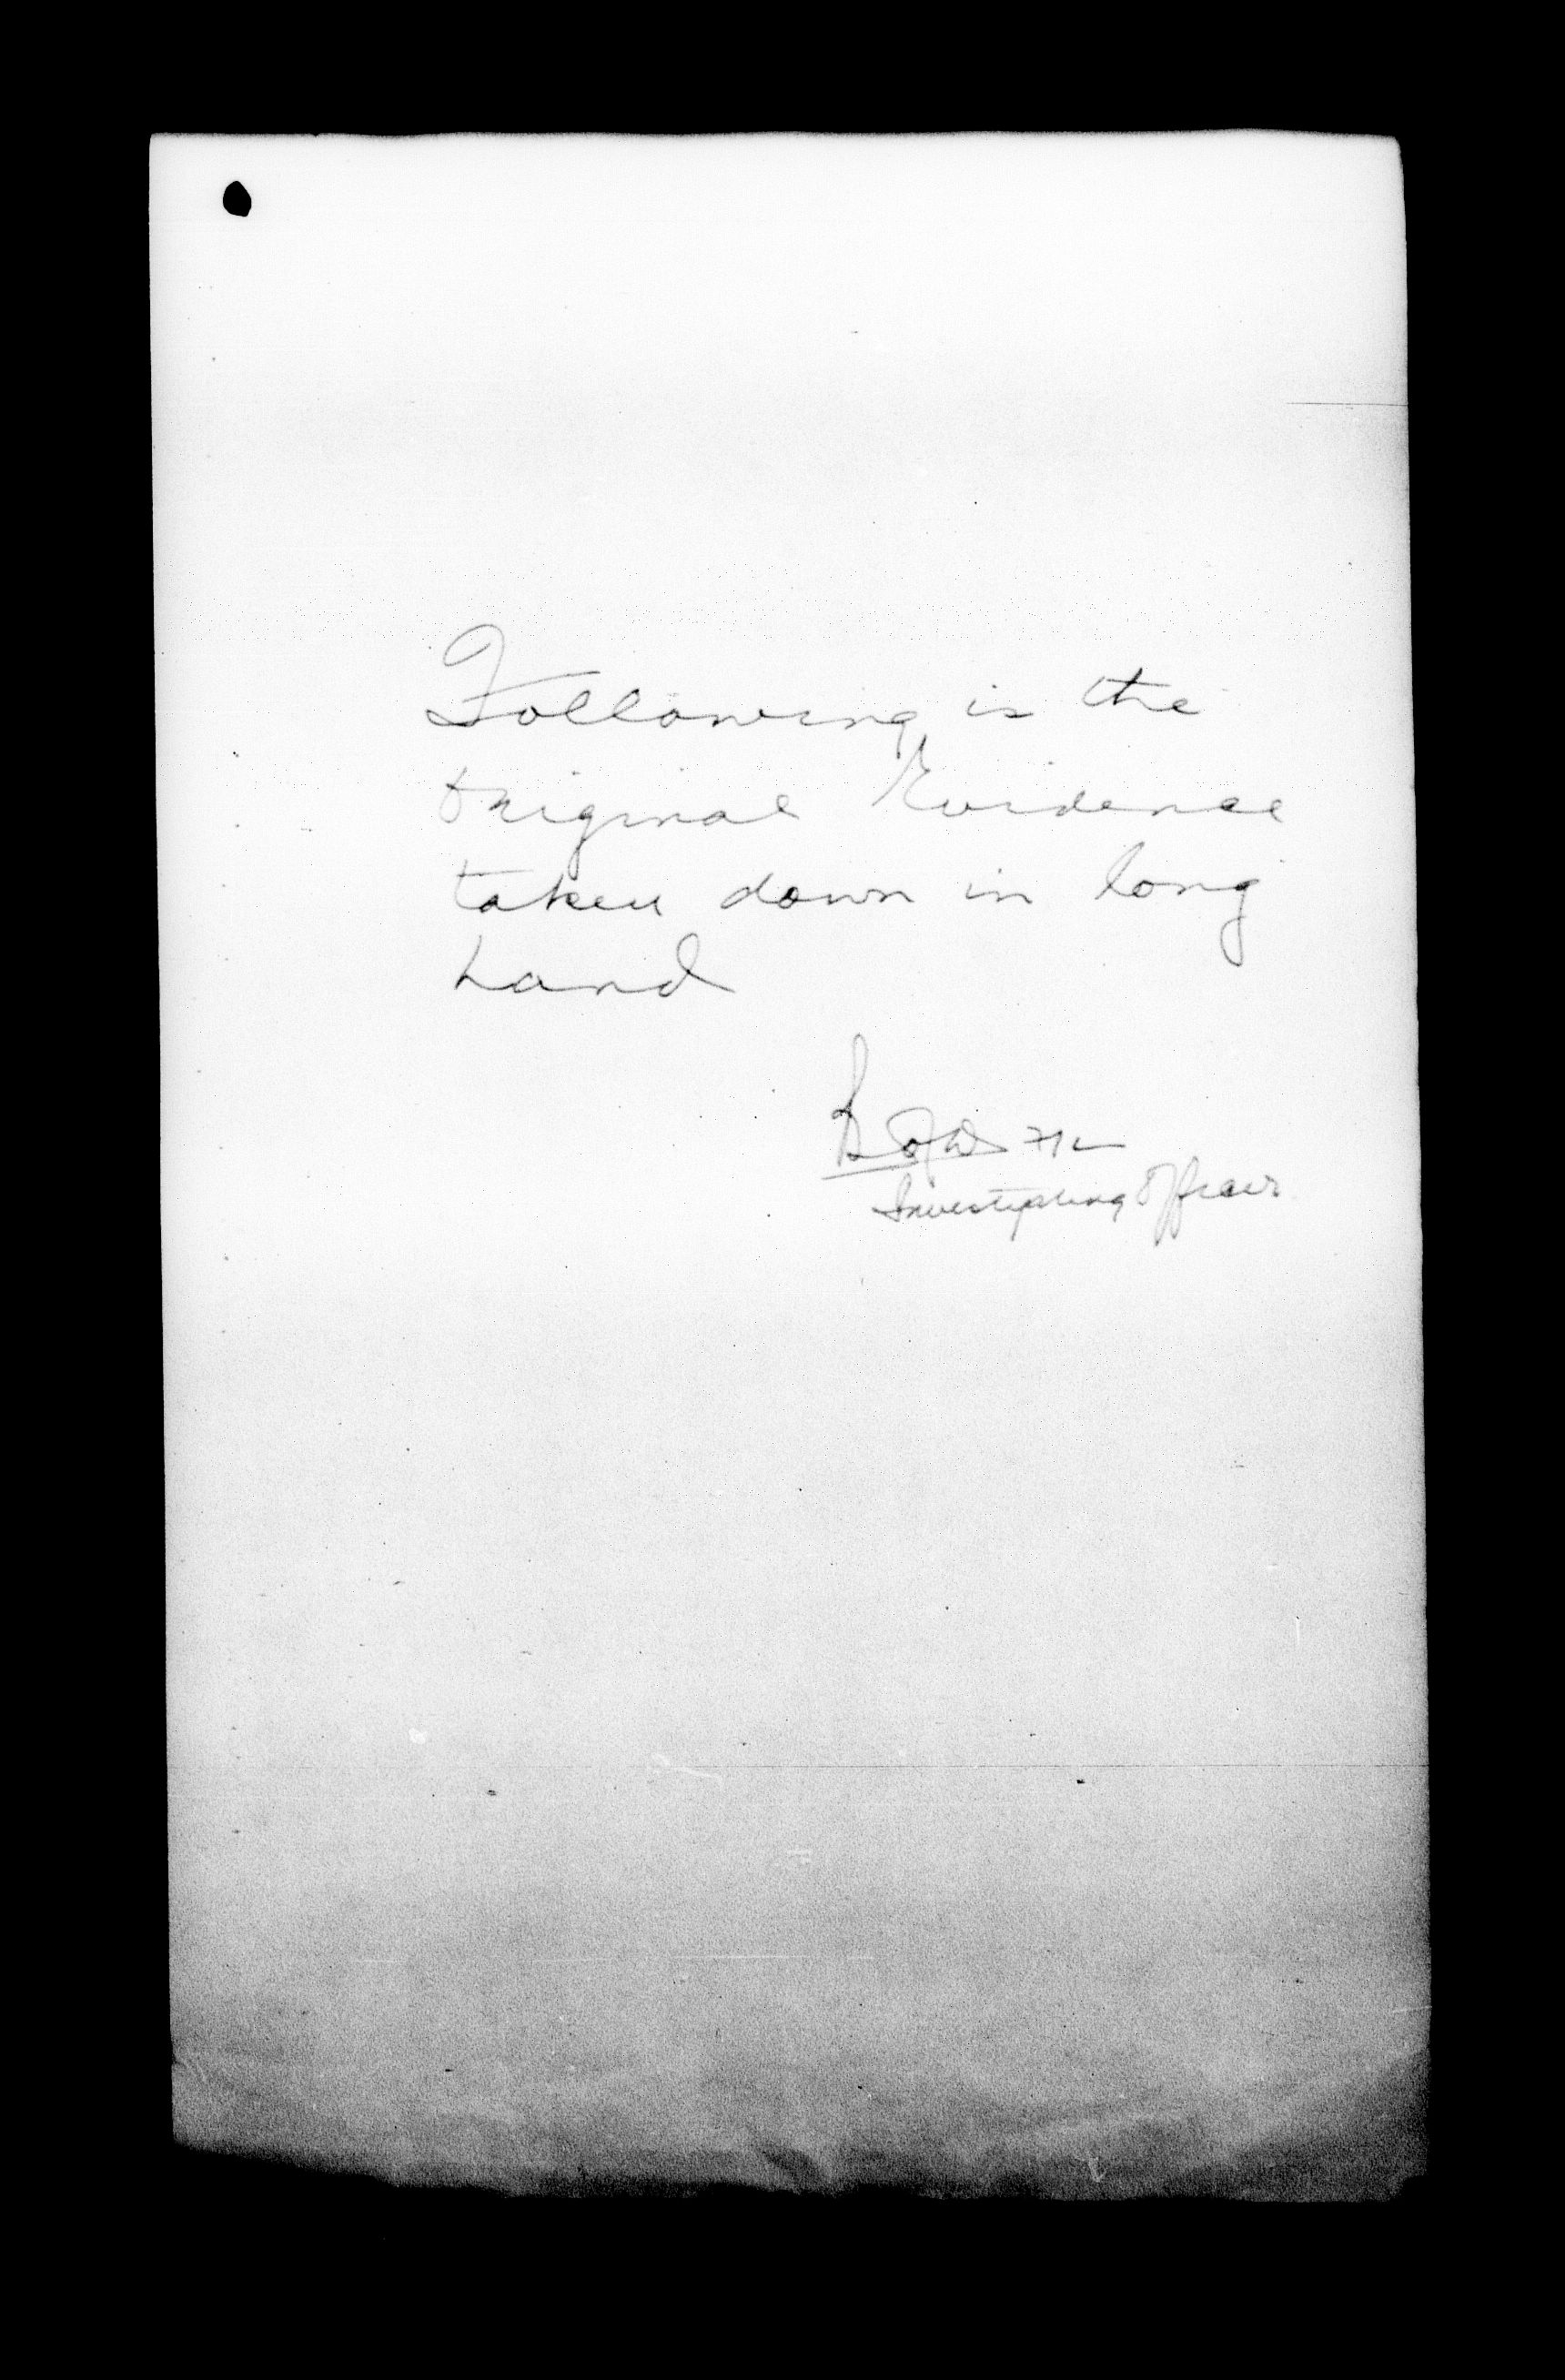 Following is the
original Evidence
taken down in long
hand
Investigating Officer